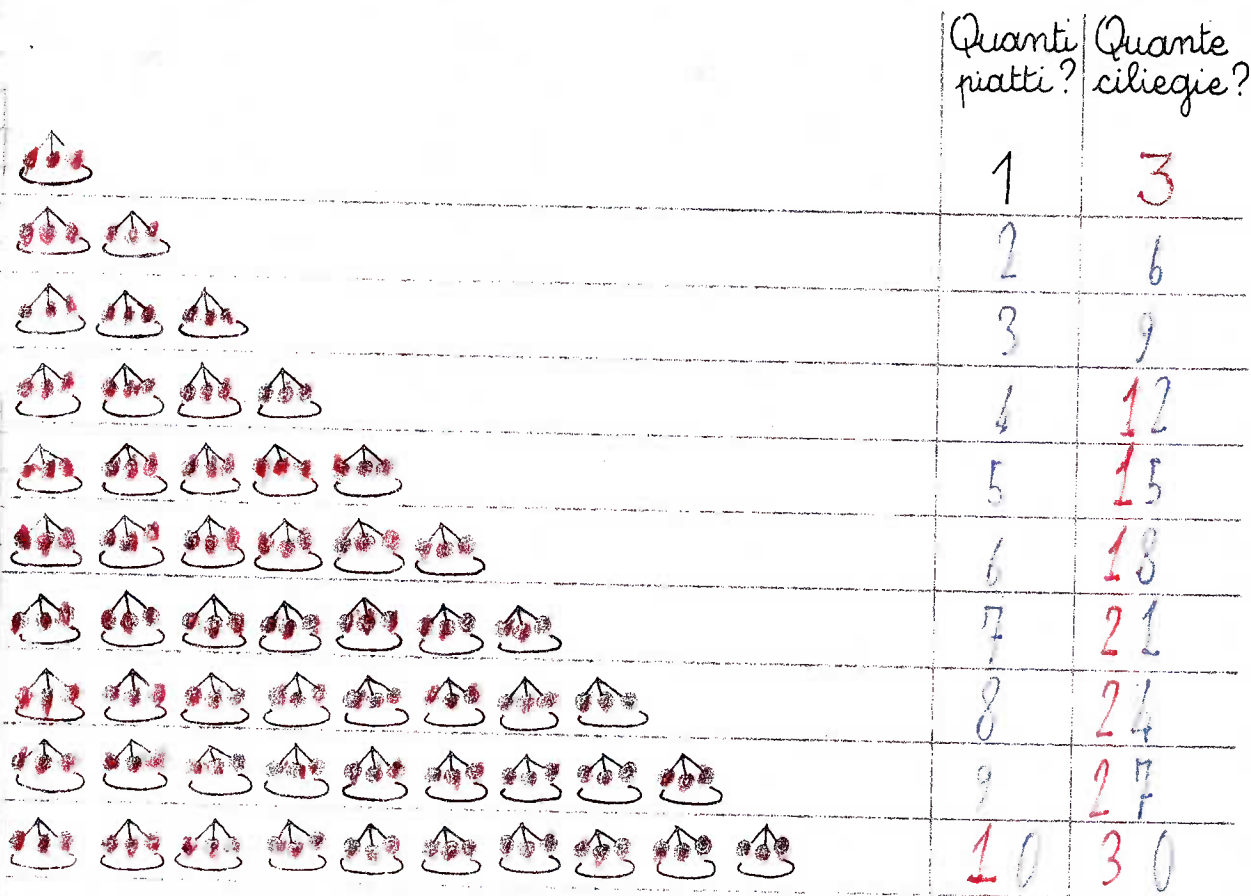 Quanti Quante
piatti? ciliegie?
1 3
2 6
3 9
4 12
5 15
6 18
7 21
8 24
9 27
10 30